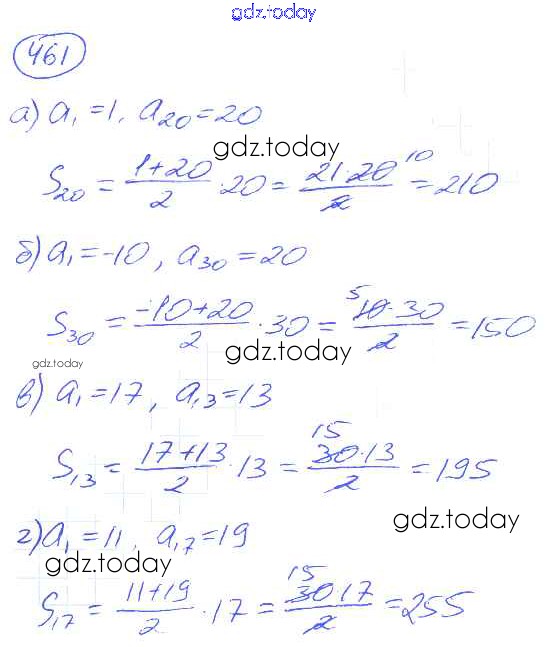 gdz.today
461
а) a₁ = 1, a₂₀ = 20
gdz.today
S₂₀ = (1+20)/2 · 20 = (21·20)/2 10 = 210
б) a₁ = -10, a₃₀ = 20
S₃₀ = (-10+20)/2 · 30 = 5 (10·30)/2 = 150
gdz.today
gdz.today
в) a₁ = 17, a₁₃ = 13
S₁₃ = (17+13)/2 · 13 = 15 (30·13)/2 = 195
gdz.today
г) a₁ = 11, a₁₇ = 19
gdz.today
S₁₇ = (11+19)/2 · 17 = 15 (30·17)/2 = 255